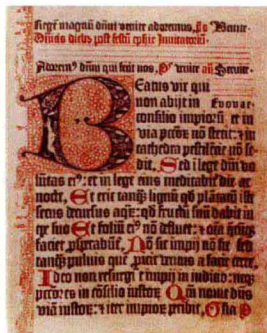 Regē magnū dn̄i venite adoremus, p̄s Venite.
Dn̄icis diebꝰ post festū ephie Inuitatoriū.
Adorem⁹ dn̄m qui fecit nos, p̄s venite añ Seruite.
Beatus vir qui
non abijt in Euouae
consilio impioꝝ et in
via pctōꝝ nō stetit: ⁊ in
cathedra pestilētie nō se-
dit, Sed ī lege dn̄i vo-
lūtas ei⁹: et in lege eius meditabit̄ die ac
nocte, Et erit tanqȝ lignū qd̄ plātatū iste
secus decursus aqȝ: qd̄ fructū suū dabit in
tꝑe suo Et foliū ei⁹ nō defluet: ⁊ oīa qēcūqȝ
faciet ꝓsperabūt̄, Nō sic impij nō sic sed
tanqȝ puluis quē ꝓicit ventus a facie terre,
Ideo non resurgūt impij in iudicio: neqȝ
pctōres in cōsilio iustoꝝ Qm̄ nouit dn̄s
viā iustoꝝ: ⁊ iter impioꝝ peribit, Gl̄ia P